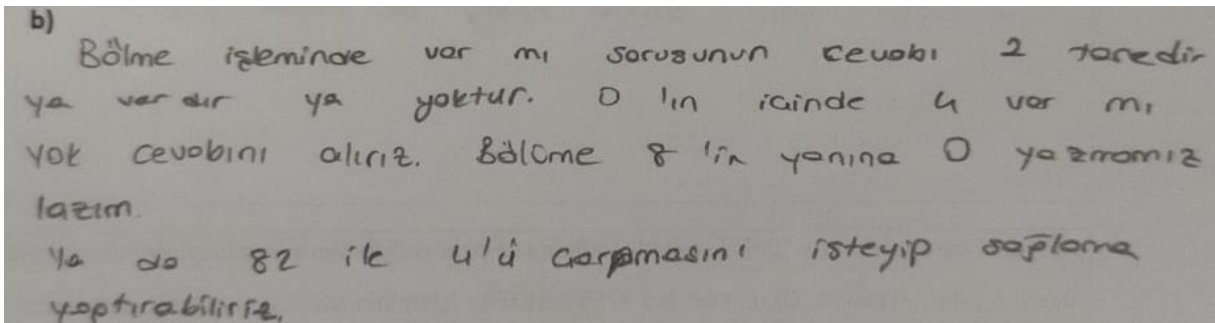 b)
Bölme işleminde var mı sorusunun cevabı 2 tanedir
ya vardır ya yoktur. 0 'ın içinde 4 var mı
yok cevabını alırız. Bölüme 8 'in yanına 0 yazmamız
lazım.
Ya da 82 ile 4'ü çarpmasını isteyip sağlama
yaptırabiliriz.